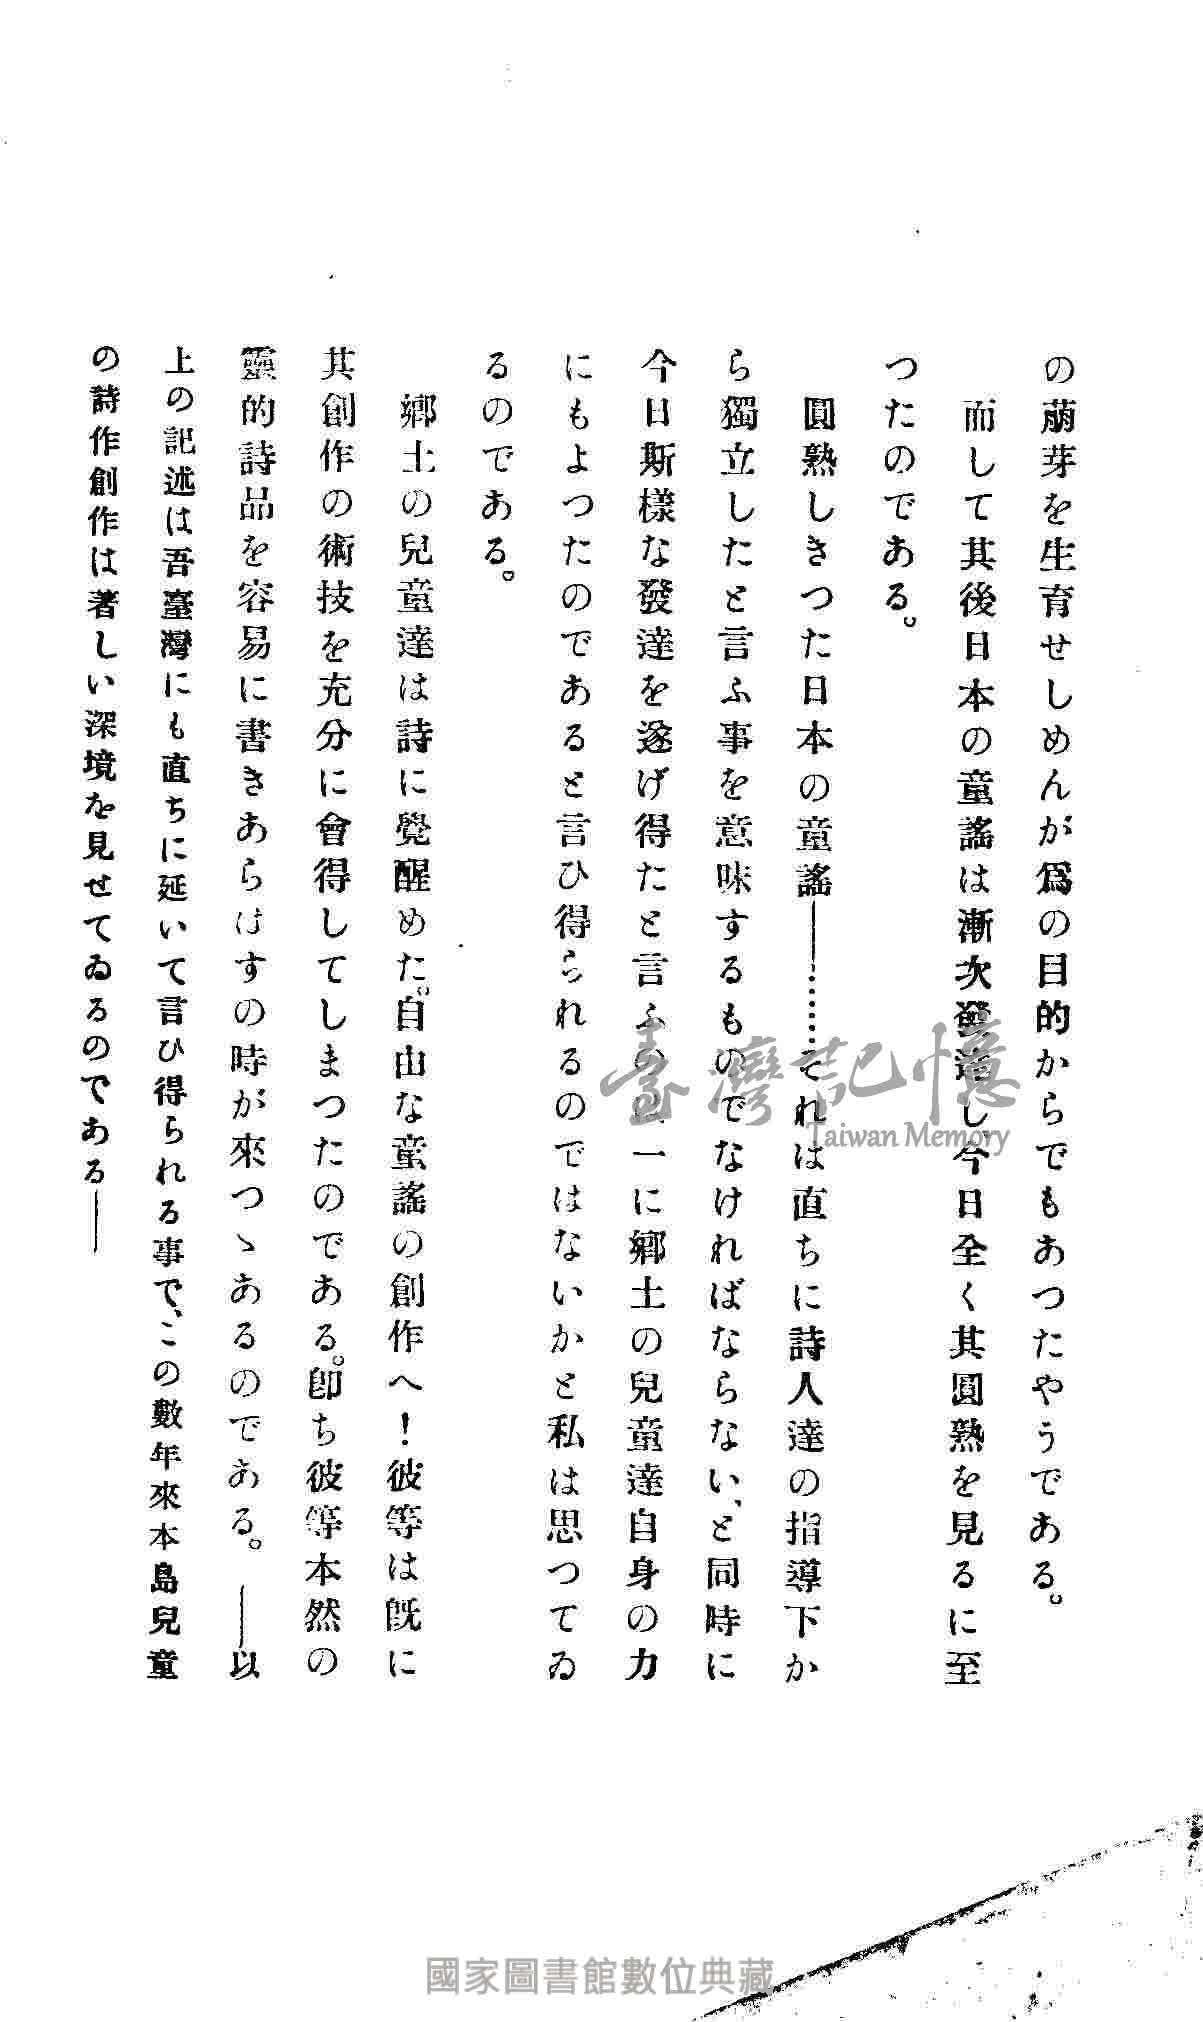 の萠芽を生育せしめんが爲の目的からでもあつたやうである。
而して其後日本の童謠は漸次發達し今日全く其圓熟を見るに至
つたのである。
圓熟しきつた日本の童謠――……それは直ちに詩人達の指導下か
ら獨立したと言ふ事を意味するものでなければならない、と同時に
今日斯樣な發達を遂げ得たと言ふのは一に鄕土の兒童達自身の力
にもよつたのであると言ひ得られるのではないかと私は思つてゐ
るのである。
鄕土の兒童達は詩に覺醒めた。自由な童謠の創作へ！彼等は旣に
其創作の術技を充分に會得してしまつたのである。卽ち彼等本然の
靈的詩品を容易に書きあらはすの時が來つゝあるのである。――以
上の記述は吾臺灣にも直ちに延いて言ひ得られる事で、この數年來本島兒童
の詩作創作は著しい深境を見せてゐるのである――
臺灣記憶
Taiwan Memory
國家圖書館數位典藏